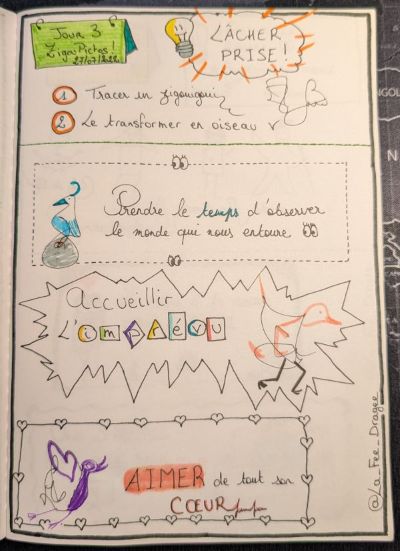 Jour 3
Zigou Pictos !
27/07/2022
LÂCHER
PRISE !
1 Tracer un zigouigoui
2 Le transformer en oiseau
Prendre le temps d'observer
le monde qui nous entoure
Accueillir
L'imprévu
AIMER de tout son
CŒUR
@La_Fee_Dragee